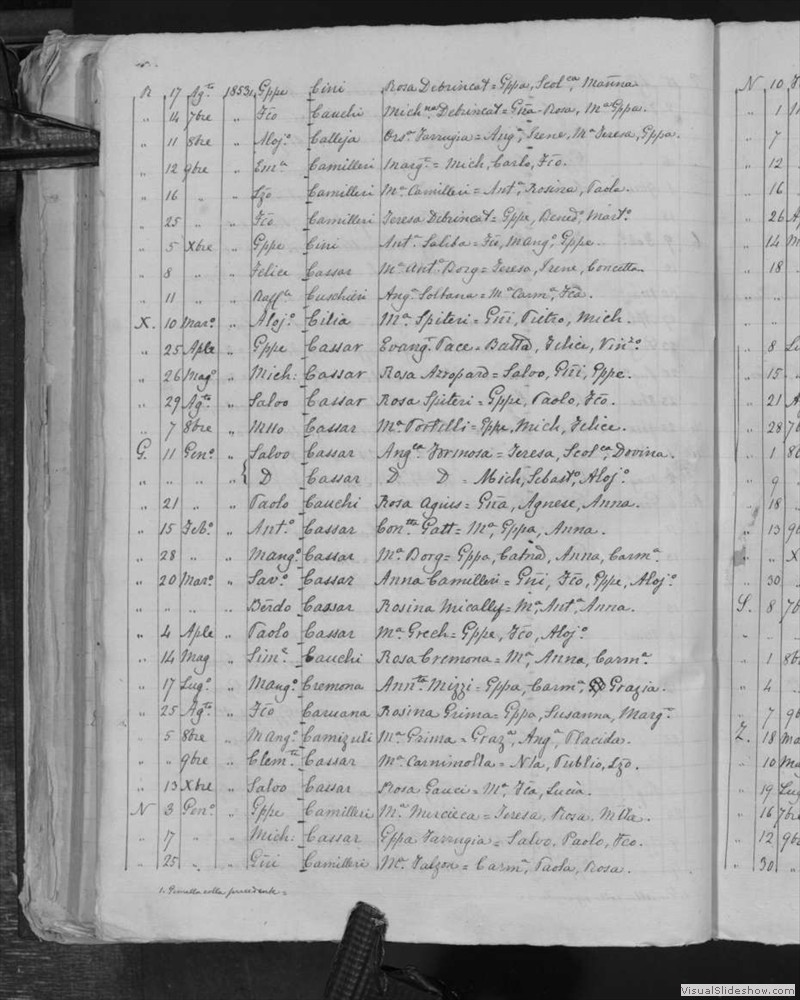 R 17 Ag.to 1853 Gppe Cini Rosa Debrincat = Gppa, Scol.ca, Marina
" 14 7bre " Fco Cauchi Mich.na Debrincat = Gña Rosa, M.a Gppa.
" 11 8bre " Aloj.o Calleja Ors.a Farrugia = Ang.a, Irene, M.a Teresa, Gppa.
" 12 9bre " Em.a Camilleri Marg.ta = Mich, Carlo, Fco.
" 16 " " Lzo Camilleri M.a Camilleri = Ant.a Rosina, Paola.
" 25 " " Fco Camilleri Teresa Debrincat = Gppe, Bened.o Mart.o
" 5 Xbre " Gppe Cini Ant.a Saliba = Fco, Mang.o, Gppe.
" 8 " " Felice Cassar M.a Ant.a Borg = Teresa, Irene, Concetta.
" 11 " " Raff.le Cuschieri Ang.a Soltana = M.a Carm.a, Fca.
X. 10 Mar.o " Aloj.o Cilia M.a Spiteri = Gñi, Pietro, Mich.
" 25 Aple " Gppe Cassar Evang.ta Pace = Batta, Felice, Vin.zo
" 26 Mag.o " Mich: Cassar Rosa Azzopard = Salvo, Gñi, Gppe.
" 29 Ag.to " Salvo Cassar Rosa Spiteri = Gppe, Paolo, Fco.
" 7 8bre " Mtto Cassar M.a Portelli = Gppe, Mich, Felice.
G. 11 Gen.o " Salvo Cassar Ang.ca Formosa = Teresa, Scol.ca, Dovina.
" " " " { D Cassar D D = Mich, Sebast.o, Aloj.o
" 21 " " Paolo Cauchi Rosa Agius = Gña, Agnese, Anna.
" 15 Feb.o " Ant.o Cassar Con.tta Gatt = M.a, Gppa, Anna.
" 28 " " Mang.o Cassar M.a Borg = Gppa, Catna, Anna, Carm.a
" 20 Mar.o " Sav.o Cassar Anna Camilleri = Gñi, Fco, Gppe, Aloj.o
" " " " Berdo Cassar Rosina Micallef = M.a, Ant.a, Anna.
" 4 Aple " Paolo Cassar M.a Grech = Gppe, Fco, Aloj.o
" 14 Mag " Sim.e Cauchi Rosa Cremona = M.a, Anna, Carm.a
" 17 Lug.o " Mang.o Cremona Ann.ta Mizzi = Gppa, Carm.a, Grazia.
" 25 Ag.to " Fco Caruana Rosina Grima = Gppa, Susanna, Marg.ta
" 5 8bre " Mang.o Camizuli M.a Grima = Graz.a, Ang.a, Placida.
" " 9bre " Clem.te Cassar M.a = Nla, Publio, Lzo.
" 13 Xbre " Salvo Cassar Rosa Gauci = M.a, Fca, Lucia.
N 3 Gen.o " Gppe Camilleri M.a Mercieca = Teresa, Rosa, Mtta.
" 17 " " Mich: Cassar Gppa Farrugia = Salvo, Paolo, Fco.
" 25 " " Gñi Camilleri M.a Falzon = Carm.a, Paola, Rosa.
N 10
" 1
" 7
" 12
" 16
" 26
" 14
" 18
" 8
" 15
" 21
" 28
" 1
" 9
" 18
" 13
" " X
" 30
S. 8
" 1
" 4
" 7
Z. 18
" 10
" 19
" 16
" 12
" 30
VisualSlideshow.com